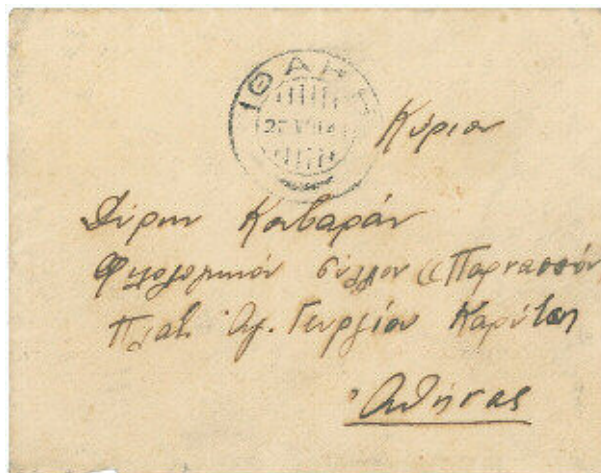 ΙΘΑΚΗ
27 VII 14
Κύριον
Σύρον Κουβαράν
Φιλολογικόν σύλλογον «Παρνασσόν
Πλατ. Ἁγ. Γεωργίου Καρύτση
Ἀθήνας